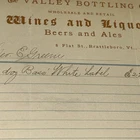 VALLEY BOTTLING CO
WHOLESALE AND RETAIL
Wines and Liquo
Beers and Ales
4 Flat St., Brattleboro,
E Greene
doz Bass White Label